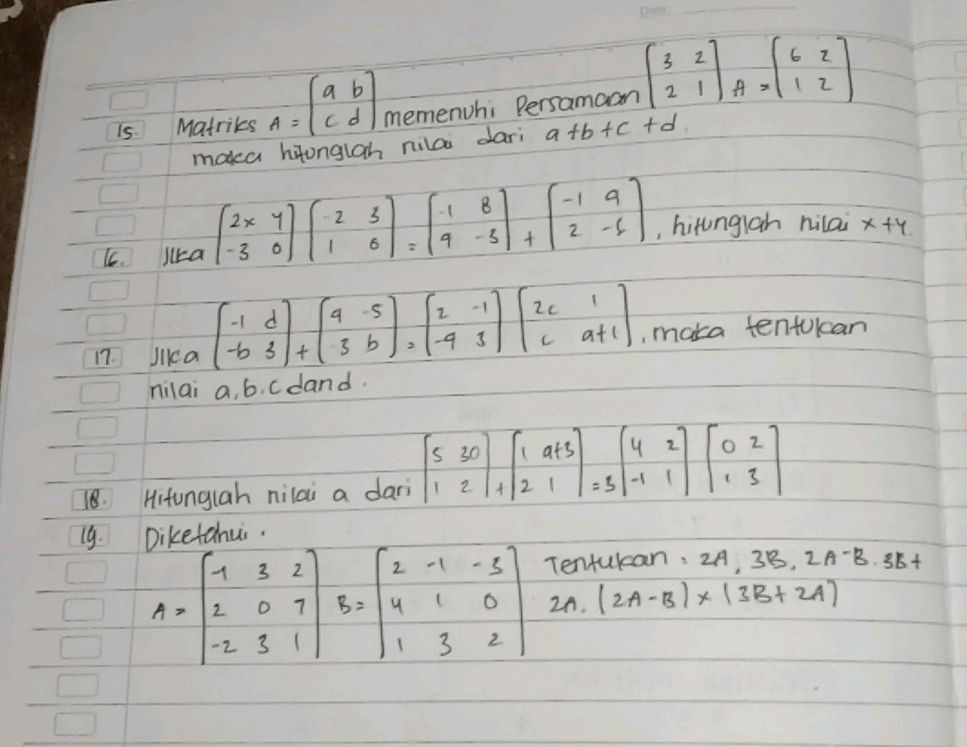 Date:
15. Matriks A = [a b / c d] memenuhi Persamaan [3 2 / 2 1] A = [6 2 / 1 2]
maka hitunglah nilai dari a+b+c+d.
16. Jika [2x y / -3 0] [-2 3 / 1 6] = [-1 8 / 9 -3] + [-1 9 / 2 -5], hitunglah nilai x+y.
17. Jika [-1 d / -b 3] + [9 -5 / -3 b] = [2 -1 / -9 3] [2c 1 / c a+1], maka tentukan
nilai a,b.c dan d.
18. Hitunglah nilai a dari [5 30 / 1 2] + [1 a+3 / 2 1] = 3 [4 2 / -1 1] [0 2 / 1 3]
19. Diketahui.
A = [-1 3 2 / 2 0 7 / -2 3 1] B = [2 -1 -3 / 4 1 0 / 1 3 2] Tentukan : 2A, 3B, 2A-B. 3B+
2A. (2A-B) x (3B+2A)